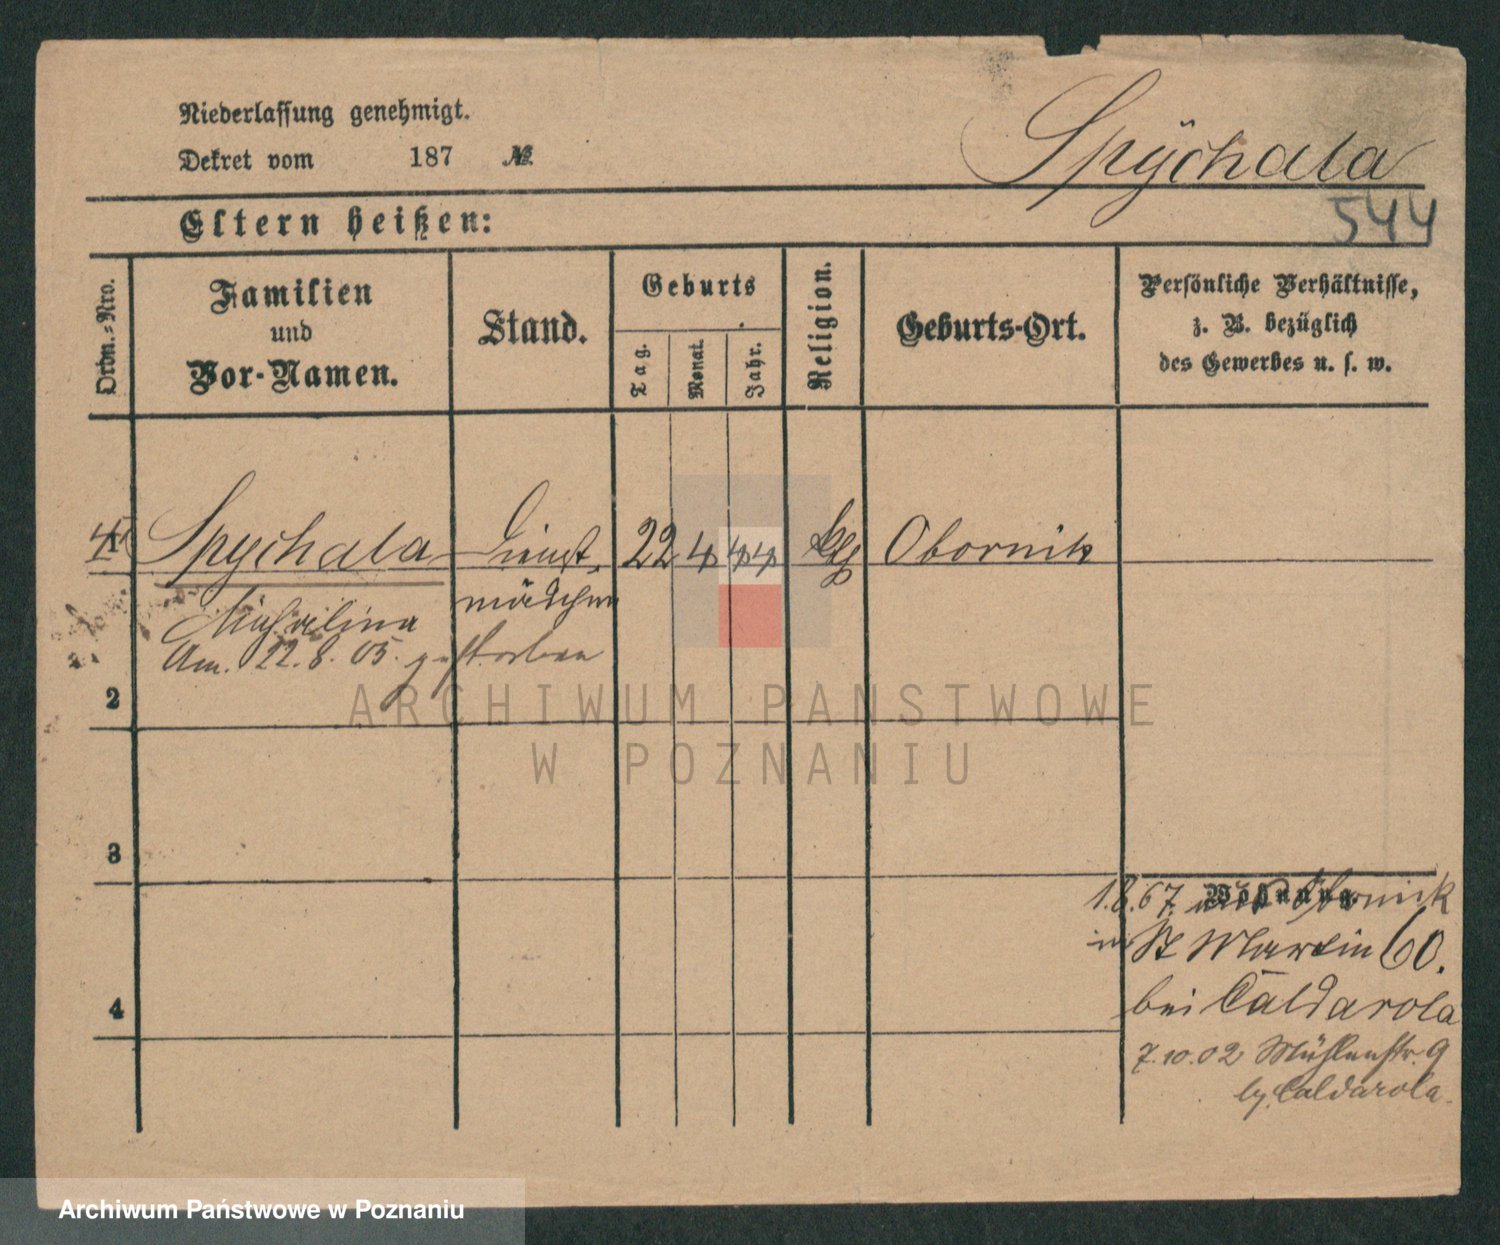 Niederlassung genehmigt.
Dekret vom 187 №
Spÿchala
544
Eltern heißen:
Ordn.=Nro.
Familien
und
Vor-Namen.
Stand.
Geburts
Tag.
Monat.
Jahr.
Religion.
Geburts-Ort.
Persönliche Verhältnisse,
z. B. bezüglich
des Gewerbes u. s. w.
Spychala Dienst 22 4 44 Obornik
Michalina mädchen
Am. 22.8.05. gestorben
2
3
Wohnung
1.8.67. aus Obornick
in St Martin 60.
4 bei Caldarola
7.10.02 Mühlenstr. 9
by. Caldarola.
ARCHIWUM PAŃSTWOWE
W POZNANIU
Archiwum Państwowe w Poznaniu